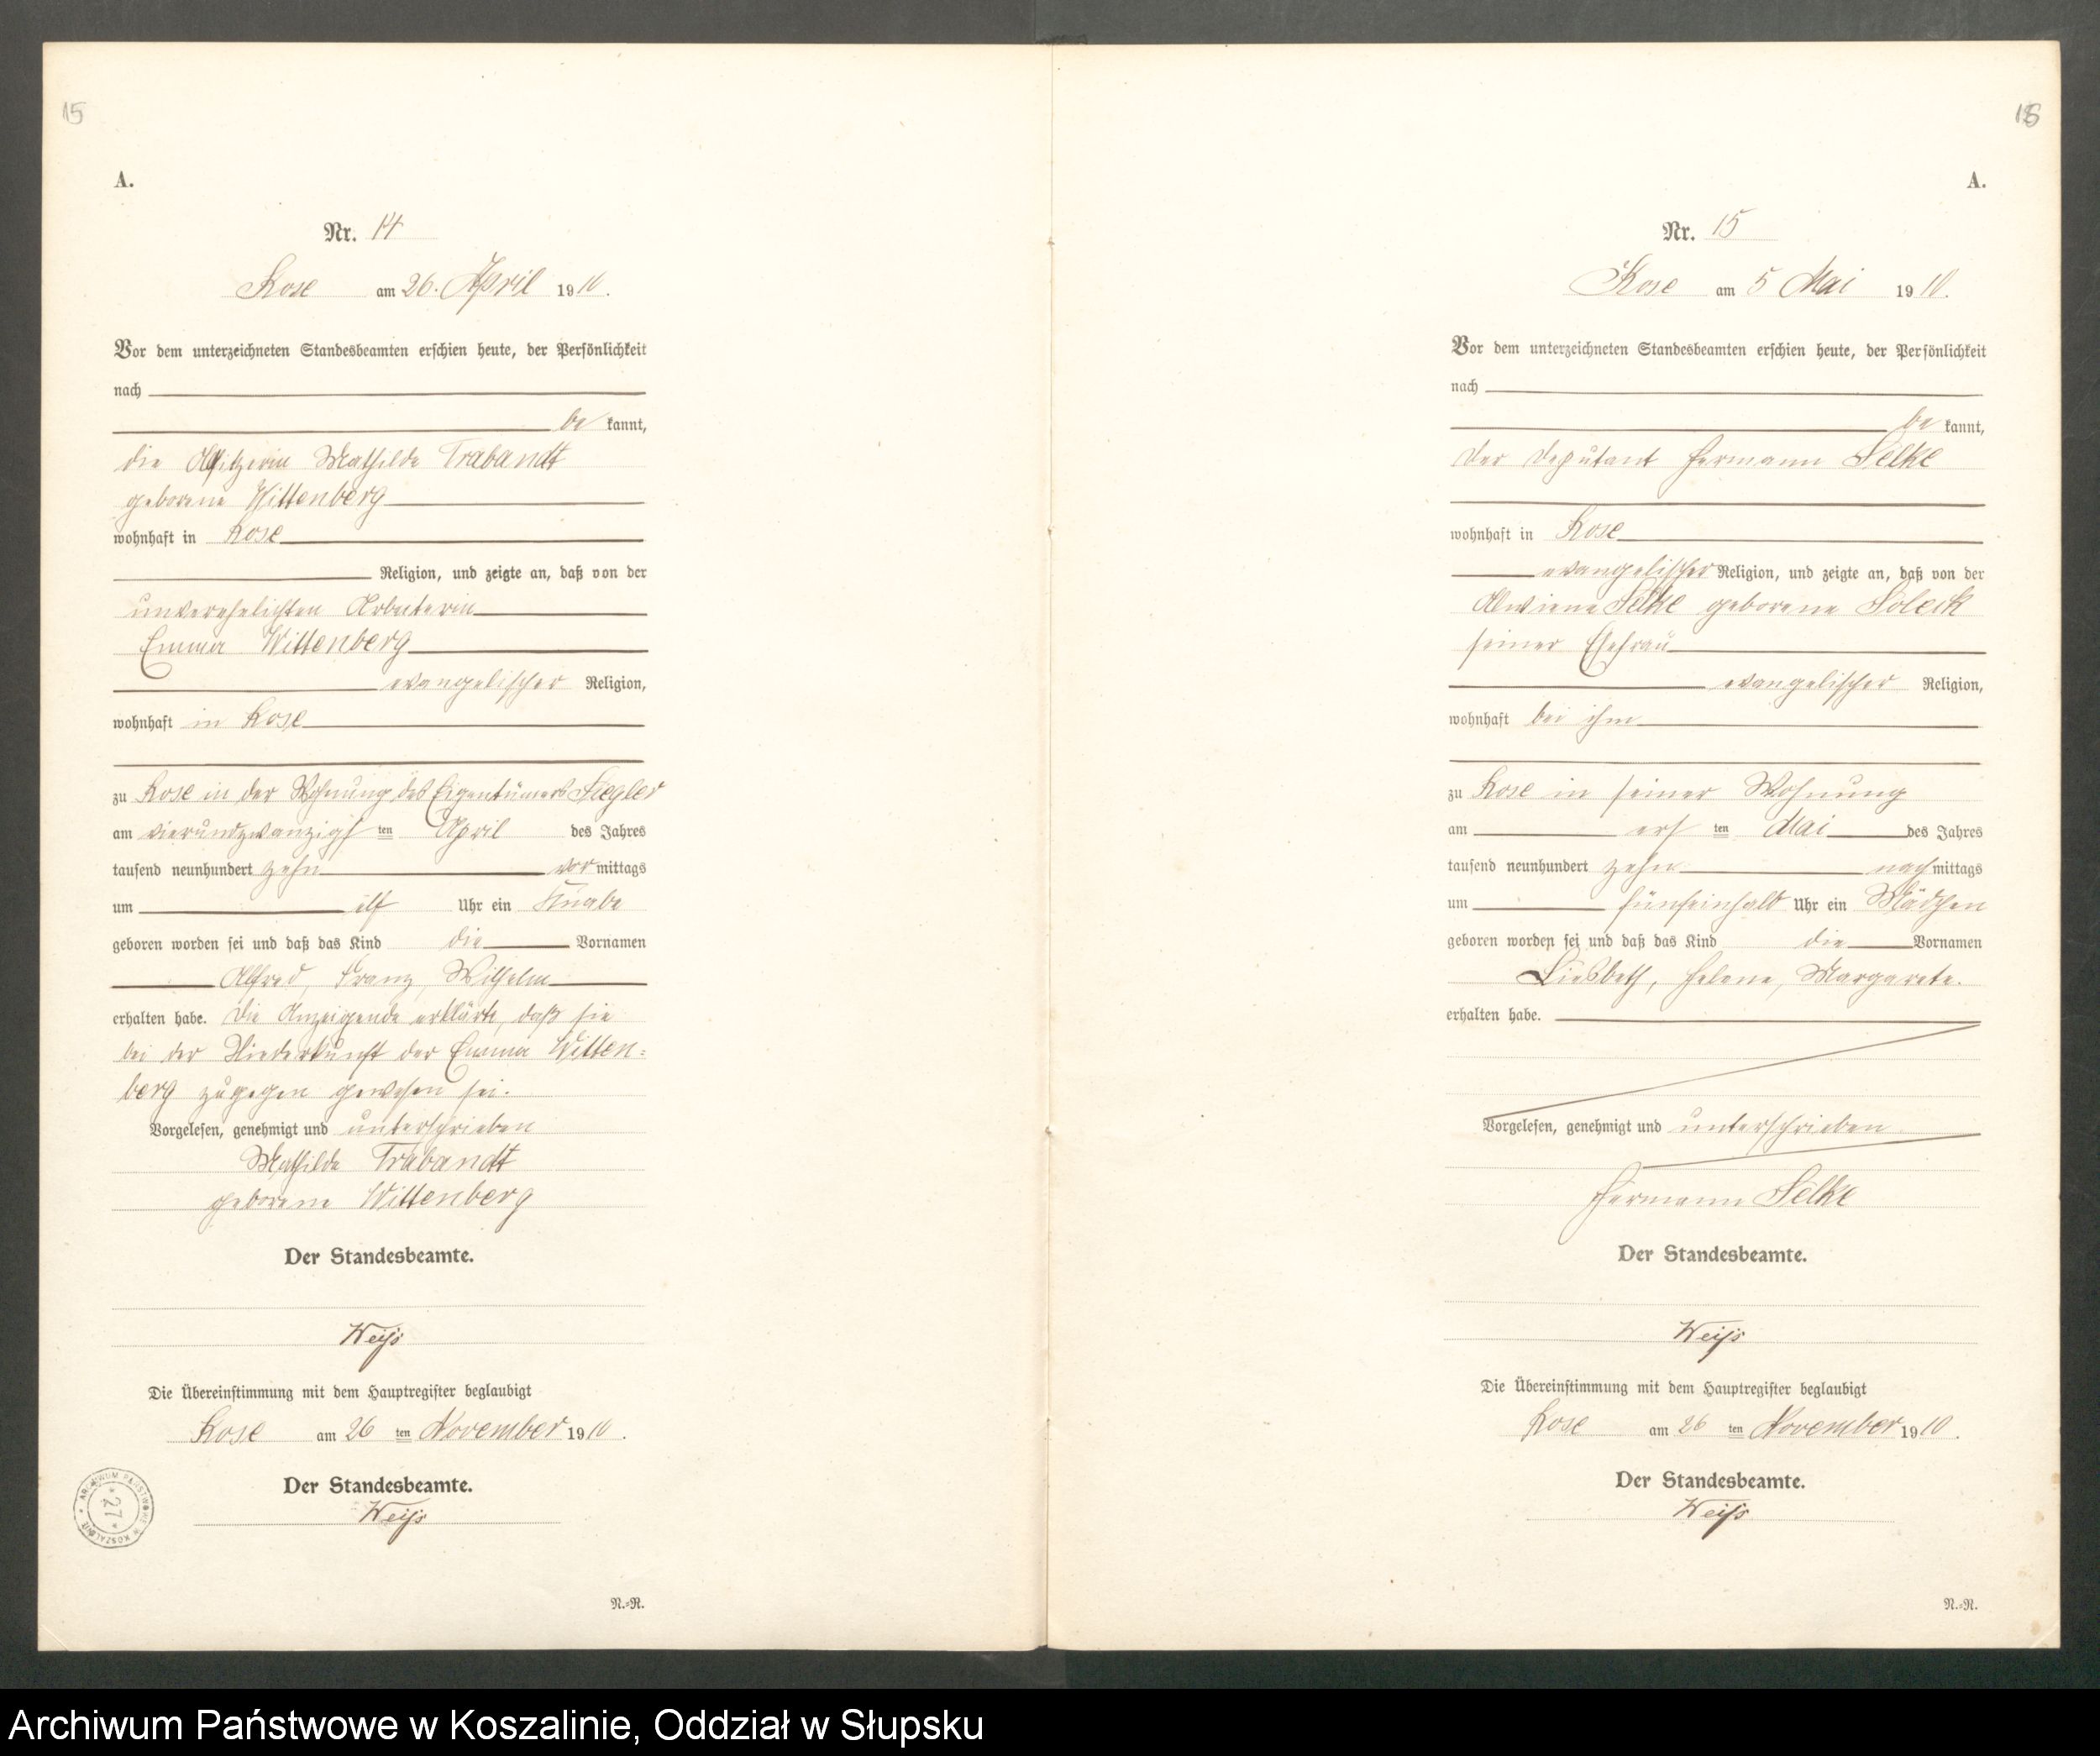 15
A.
Nr. 14
Kose am 26. April 1910.
Vor dem unterzeichneten Standesbeamten erschien heute, der Persönlichkeit
nach
be kannt,
die Mathilde Trabandt
geborene Wittenberg
wohnhaft in Kose
Religion, und zeigte an, daß von der
unverehelichten Arbeiterin
Emma Wittenberg
evangelischer Religion,
wohnhaft in Kose
zu Kose in der Wohnung des Eigentümers
am vierundzwanzigs ten April des Jahres
tausend neunhundert zehn vor mittags
um elf Uhr ein Knabe
geboren worden sei und daß das Kind die Vornamen
Alfred, Franz, Wilhelm
erhalten habe. Die Anzeigende erklärte, daß sie
bei der Niederkunft der Emma Witten=
berg zugegen gewesen sei.
Vorgelesen, genehmigt und unterschrieben
Mathilde Trabandt
geborene Wittenberg
Der Standesbeamte.
Weiß
Die Übereinstimmung mit dem Hauptregister beglaubigt
Kose am 26 ten November 1910.
Der Standesbeamte.
Weiß
ARCHIWUM PAŃSTWOWE W KOSZALINIE * 27 *
N.=N.
16
A.
Nr. 15
Kose am 5 Mai 1910.
Vor dem unterzeichneten Standesbeamten erschien heute, der Persönlichkeit
nach
be kannt,
der Deputant Hermann Selke
wohnhaft in Kose
evangelischer Religion, und zeigte an, daß von der
Alwiene Selke geborene
seiner Ehefrau
evangelischer Religion,
wohnhaft bei ihm
zu Kose in seiner Wohnung
am ers ten Mai des Jahres
tausend neunhundert zehn nach mittags
um fünfeinhalb Uhr ein Mädchen
geboren worden sei und daß das Kind die Vornamen
Liesbeth, Helene, Margarete.
erhalten habe.
Vorgelesen, genehmigt und unterschrieben
Hermann Selke
Der Standesbeamte.
Weiß
Die Übereinstimmung mit dem Hauptregister beglaubigt
Kose am 26 ten November 1910.
Der Standesbeamte.
Weiß
N.=N.
Archiwum Państwowe w Koszalinie, Oddział w Słupsku